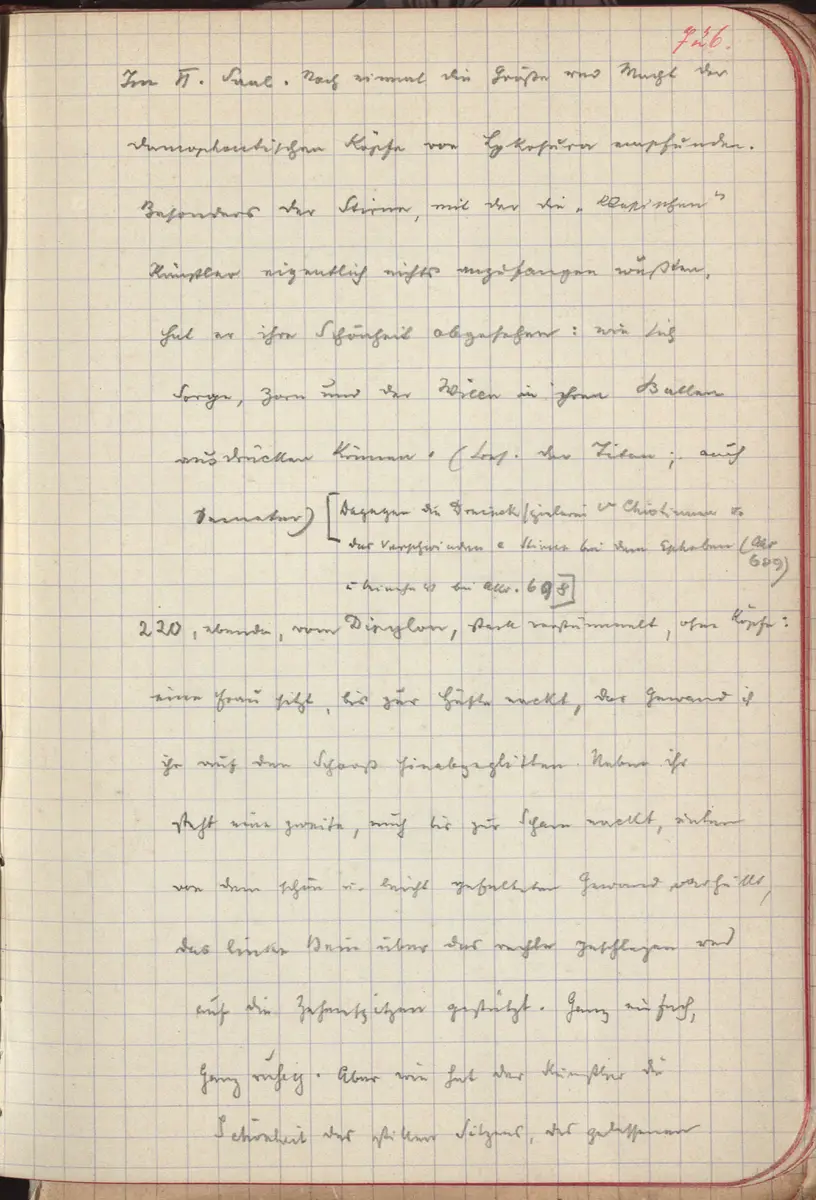 726.
Im II. Saal. Noch einmal die Größe und Macht der
damophontischen Köpfe von Lykosura empfunden.
Besonders der Stirne, mit der die „klassischen“
Künstler eigentlich nichts anzufangen wußten,
hat er ihre Schönheit abgesehen: wie sich
Sorge, Zorn und der Wille in ihren Ballen
ausdrücken können. (bes. der Titan; auch
Demeter) [Dagegen die Dreieckspielerei
das Verschwinden Stirne bei dem Epheben (Akr
689)
bei Akr. 698]
220, ebenda, vom Dipylon, stark verstümmelt, ohne Köpfe:
eine Frau sitzt, bis zur Hüfte nackt, das Gewand ist
ihr auf den Schooß hinabgeglitten. Neben ihr
steht eine zweite, auch bis zur Scham nackt, unten
von dem schön u. leicht gefalteten Gewand verhüllt,
das linke Bein über das rechte geschlagen und
auf die Zehenspitzen gestützt. Ganz einfach,
Ganz ruhig. Aber wie hat der Künstler die
Schönheit des stillen Sitzens, des gelassenen